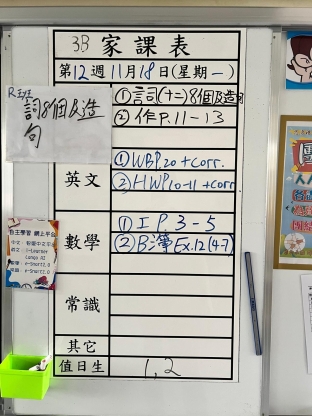 3B 家課表
第12週11月18日(星期一)
R班
詞8個及造句
①言詞(十二)8個及造句
②作P.11-13
英文
①WBP.20 + corr.
②HWP.10-11 + corr
數學
①I P. 3-5
②B簿Ex.12(4-7)
常識
其它
值日生
1, 2
自主學習 網上平台